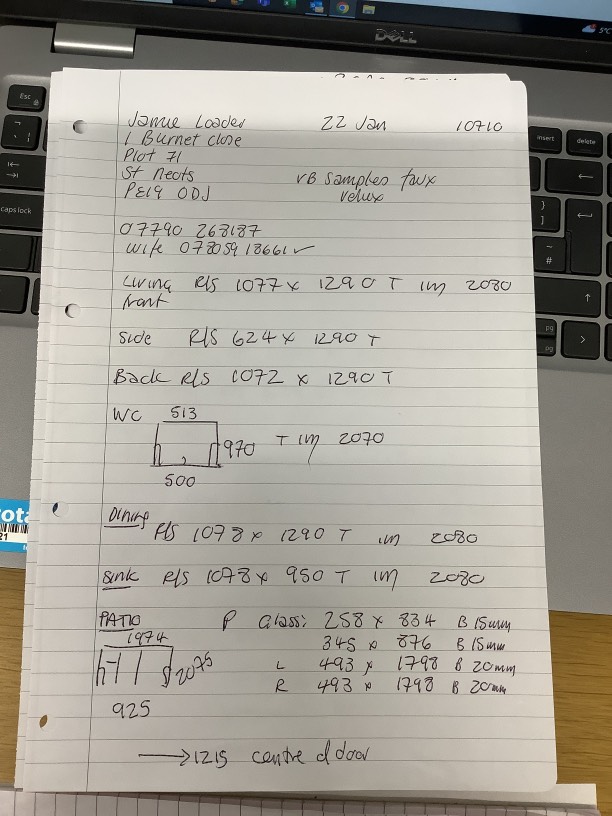 DELL
5°C
Esc
insert
delete
caps lock
Jamie Loader 22 Jan 10710
1 Burnet close
Plot 71
St Neots VB Samples faux
PE19 0DJ velux
07790 268187
wife 078059 18661 ✓
Living R/S 1077 x 1290 T 1m 2080
front
Side R/S 624 x 1290 T
Back R/S 1072 x 1290 T
WC 513
970 T 1m 2070
500
Dining
R/S 1078 x 1290 T 1m 2080
Sink R/S 1078 x 950 T 1m 2080
PATIO P Glass: 258 x 834 B 15mm
1974 345 x 876 B 15mm
2075 L 493 x 1798 B 20mm
R 493 x 1798 B 20mm
925
→ 1215 centre d door